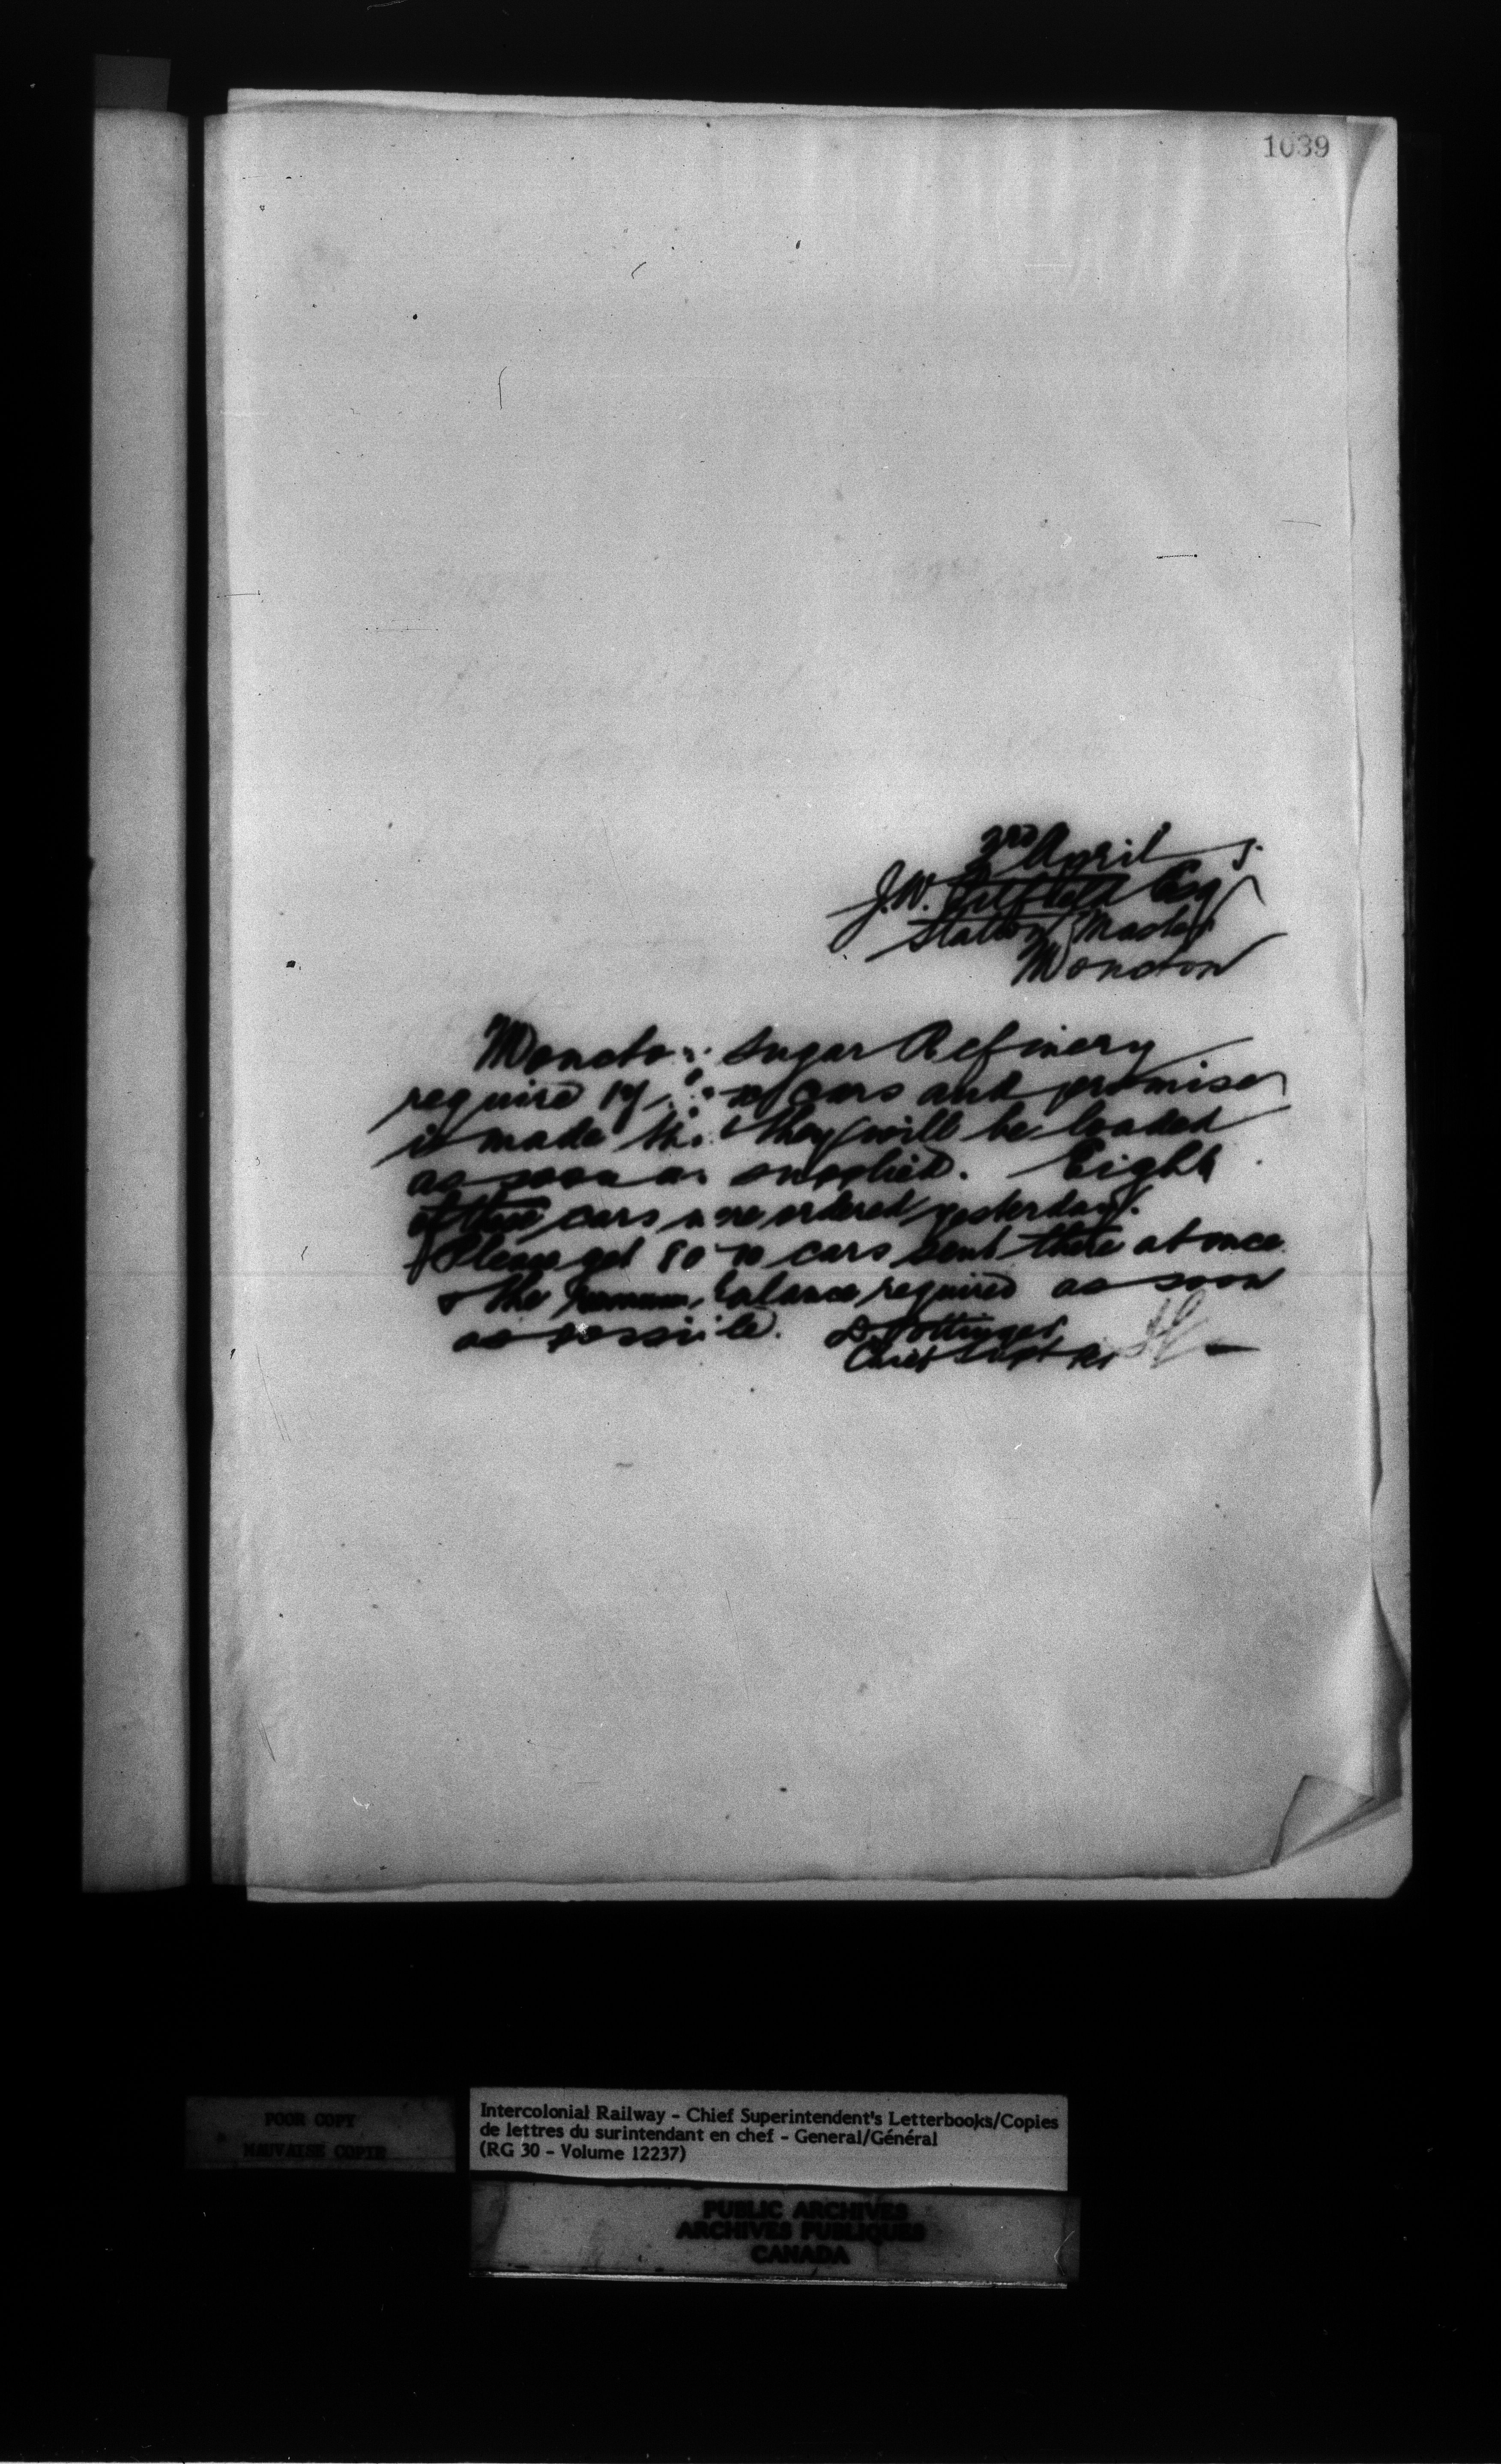 1039
3rd April 5.
J. W. Esq
Station Master
Moncton
Moncton Sugar Refinery
require cars and promise
is made that they will be loaded
as soon as supplied. Eight
of these cars were ordered yesterday.
Please get cars sent there at once
& the balance required as soon
as possible. D. Pottinger
Chief Supt
POOR COPY
MAUVAISE COPIE
Intercolonial Railway - Chief Superintendent's Letterbooks/Copies
de lettres du surintendant en chef - General/Général
(RG 30 - Volume 12237)
PUBLIC ARCHIVES
ARCHIVES PUBLIQUES
CANADA